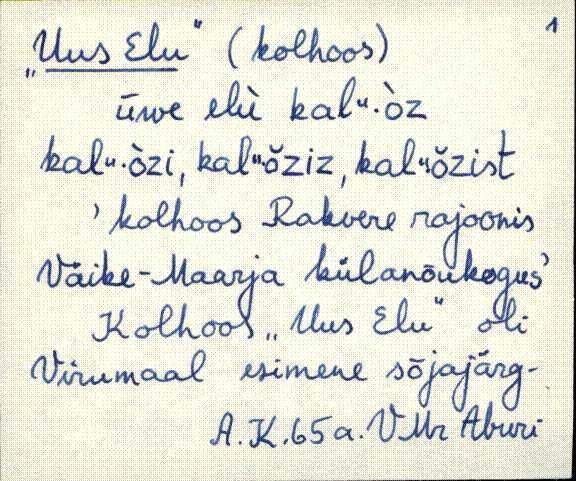 1
„Uus Elu" (kolhoos)
ūwe elù kalᵘ·òz
kalᵘ·òzi, kalᵘ·ŏziz, kalᵘ·ŏzist
' kolhoos Rakvere rajoonis
Väike-Maarja külanõukogus'
Kolhoos „Uus Elu" oli
Virumaal esimene sõjajärg-
A.K. 65 a. VMr Aburi